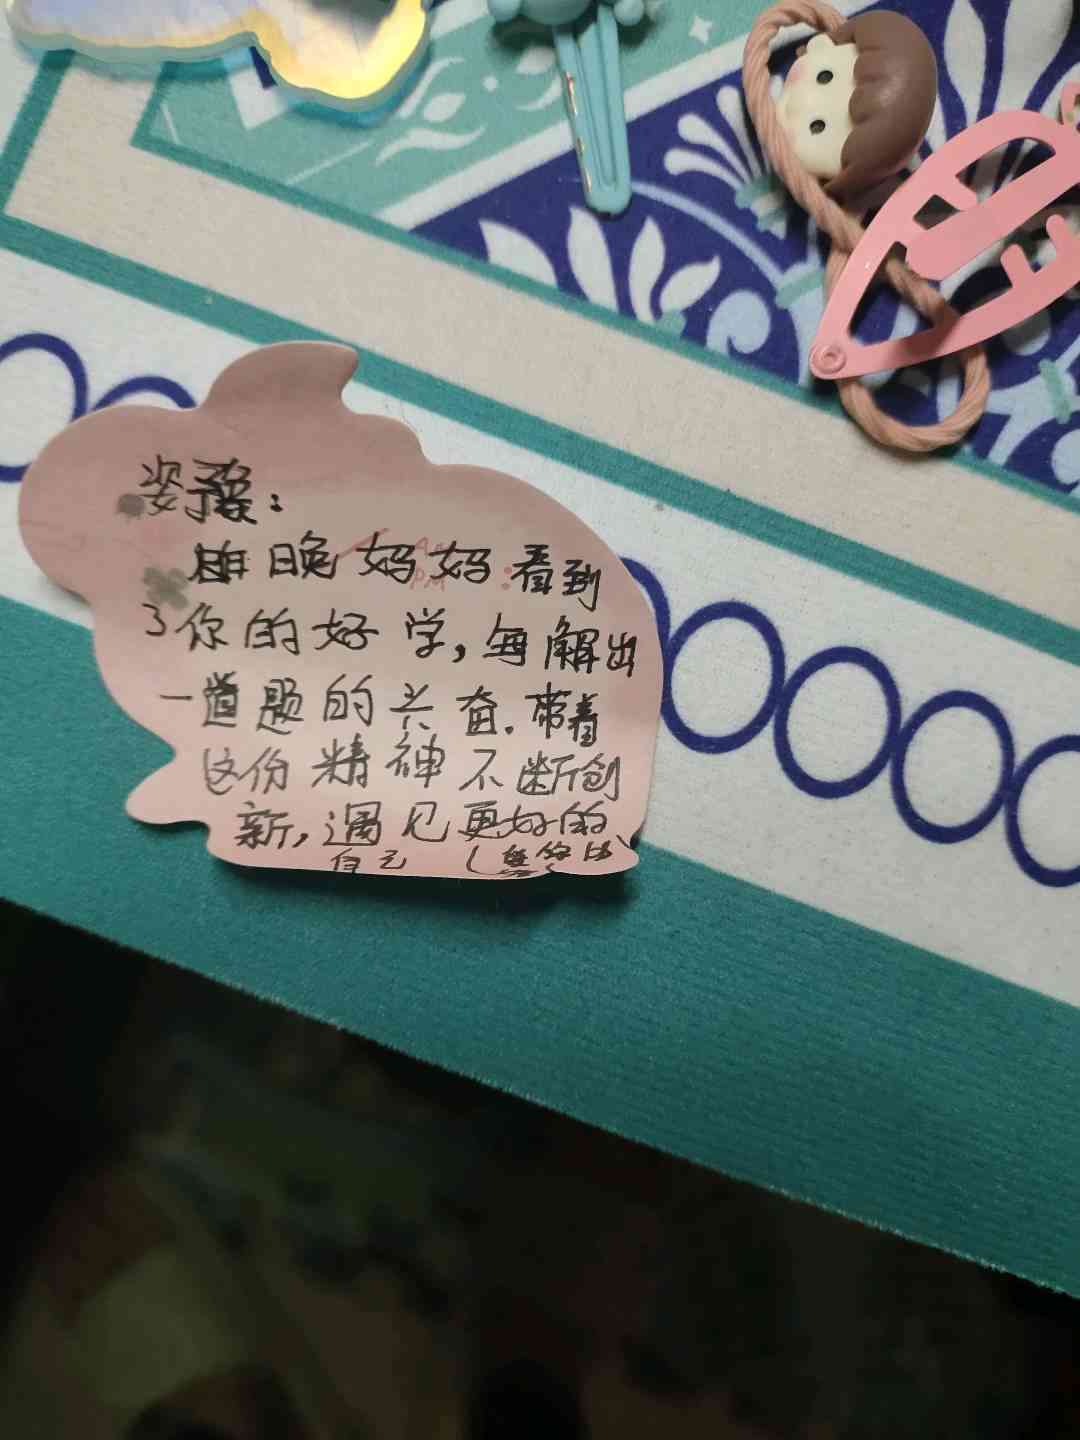 姿璨：
昨晚妈妈看到
AM
PM
了你的好学，每解出
一道题的兴奋.带着
这份精神不断创
新，遇见更好的
自己（